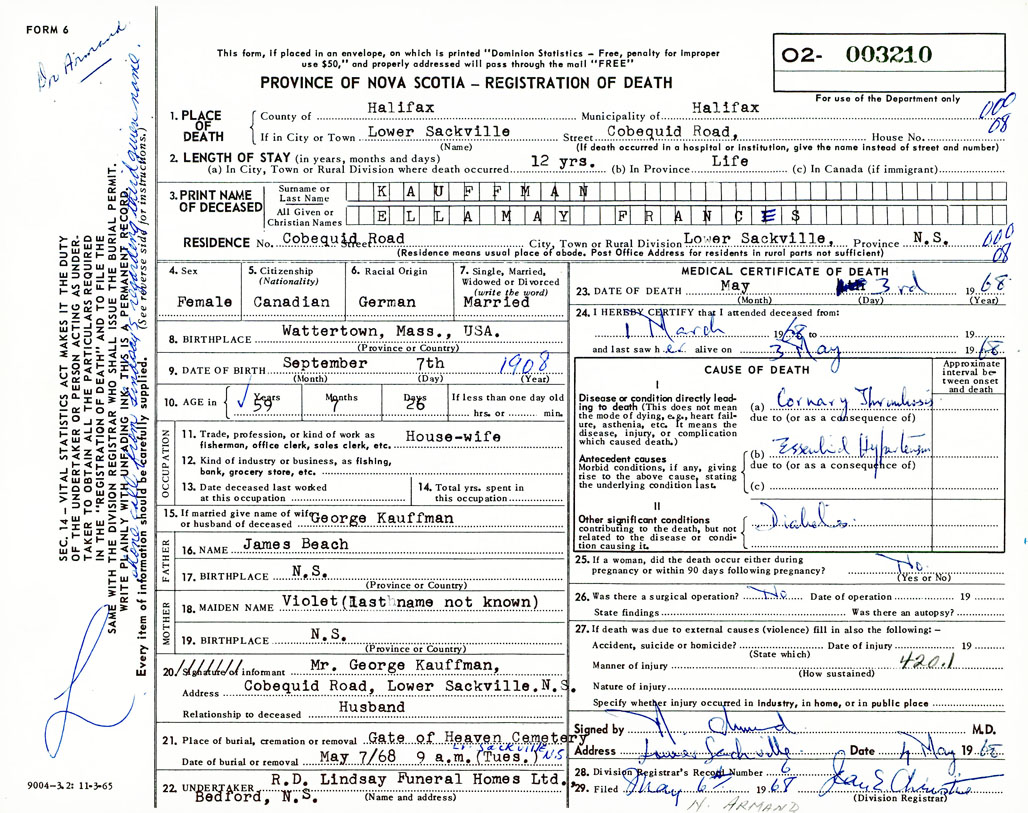 FORM 6
Dr Armand
This form, if placed in an envelope, on which is printed "Dominion Statistics – Free, penalty for improper
use $50," and properly addressed will pass through the mail "FREE"
PROVINCE OF NOVA SCOTIA – REGISTRATION OF DEATH
O2- 003210
For use of the Department only
1. PLACE OF DEATH
County of Halifax Municipality of Halifax 000
If in City or Town Lower Sackville Street Cobequid Road, House No. 08
(Name) (If death occurred in a hospital or institution, give the name instead of street and number)
2. LENGTH OF STAY (in years, months and days)
(a) In City, Town or Rural Division where death occurred 12 yrs. (b) In Province Life (c) In Canada (if immigrant)
3. PRINT NAME OF DECEASED
Surname or Last Name KAUFFMAN
All Given or Christian Names ELLA MAY FRANCES
RESIDENCE No. Cobequid Road Street City, Town or Rural Division Lower Sackville, Province N.S. 000
(Residence means usual place of abode. Post Office Address for residents in rural parts not sufficient) 08
4. Sex
Female
5. Citizenship
(Nationality)
Canadian
6. Racial Origin
German
7. Single, Married,
Widowed or Divorced
(write the word)
Married
8. BIRTHPLACE Wattertown, Mass., USA.
(Province or Country)
9. DATE OF BIRTH September 7th 1908
(Month) (Day) (Year)
10. AGE in Years 59 Months 7 Days 26 If less than one day old
hrs. or min.
OCCUPATION
11. Trade, profession, or kind of work as
fisherman, office clerk, sales clerk, etc. House-wife
12. Kind of industry or business, as fishing,
bank, grocery store, etc.
13. Date deceased last worked
at this occupation
14. Total yrs. spent in
this occupation
15. If married give name of wife
or husband of deceased George Kauffman
FATHER
16. NAME James Beach
17. BIRTHPLACE N.S.
(Province or Country)
MOTHER
18. MAIDEN NAME Violet (last name not known)
19. BIRTHPLACE N.S.
(Province or Country)
20. Signature of informant Mr. George Kauffman,
Address Cobequid Road, Lower Sackville. N.S.
Relationship to deceased Husband
21. Place of burial, cremation or removal Gate of Heaven Cemetery
Lr. Sackville N.S
Date of burial or removal May 7/68 9 a.m. (Tues.)
22. UNDERTAKER R.D. Lindsay Funeral Homes Ltd.
Bedford, N.S. (Name and address)
MEDICAL CERTIFICATE OF DEATH
23. DATE OF DEATH May 3rd 1968.
(Month) (Day) (Year)
24. I HEREBY CERTIFY that I attended deceased from:
1 March 1968 to
and last saw her alive on 3 May 1968.
CAUSE OF DEATH
Approximate
interval be-
tween onset
and death
I
Disease or condition directly lead-
ing to death (This does not mean
the mode of dying, e.g., heart fail-
ure, asthenia, etc. It means the
disease, injury, or complication
which caused death.)
(a) Cornary Thrombosis
due to (or as a consequence of)
Antecedent causes
Morbid conditions, if any, giving
rise to the above cause, stating
the underlying condition last.
(b) Essential Hypertension
due to (or as a consequence of)
(c)
II
Other significant conditions
contributing to the death, but not
related to the disease or condi-
tion causing it.
Diabetes
25. If a woman, did the death occur either during
pregnancy or within 90 days following pregnancy? No.
(Yes or No)
26. Was there a surgical operation? No Date of operation 19
State findings Was there an autopsy?
27. If death was due to external causes (violence) fill in also the following: –
Accident, suicide or homicide? Date of injury 19
(State which)
Manner of injury 420.1
(How sustained)
Nature of injury
Specify whether injury occurred in industry, in home, or in public place
Signed by H. Armand M.D.
Address Lower Sackville Date 4 May 1968
28. Division Registrar's Record Number 6
29. Filed May 6th 1968 Jean E Christie
(Division Registrar)
N. ARMAND
SEC. 14 – VITAL STATISTICS ACT MAKES IT THE DUTY
OF THE UNDERTAKER OR PERSON ACTING AS UNDER-
TAKER TO OBTAIN ALL THE PARTICULARS REQUIRED
IN THE "REGISTRATION OF DEATH" AND TO FILE THE
SAME WITH THE DIVISION REGISTRAR WHO SHALL ISSUE THE BURIAL PERMIT.
WRITE PLAINLY WITH UNFADING INK. THIS IS A PERMANENT RECORD.
Phone call from Lindsay's regarding third given name.
Every item of information should be carefully supplied. (See reverse side for instructions.)
9004-3.2: 11-3-65